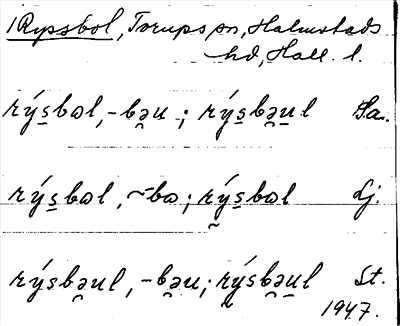 1 Ryssbol, Torups sn, Halmstads
hd, Hall. l.
rý̱sbɷl, -bə̯u ; rý̱sbə̯u̱l Sa.
rý̱sbɷl, ~bɷ ; rý̱sbɷl Lj.
rýsbə̯ul, -bə̯u ; rý̱sbə̯u̱l St.
1947.